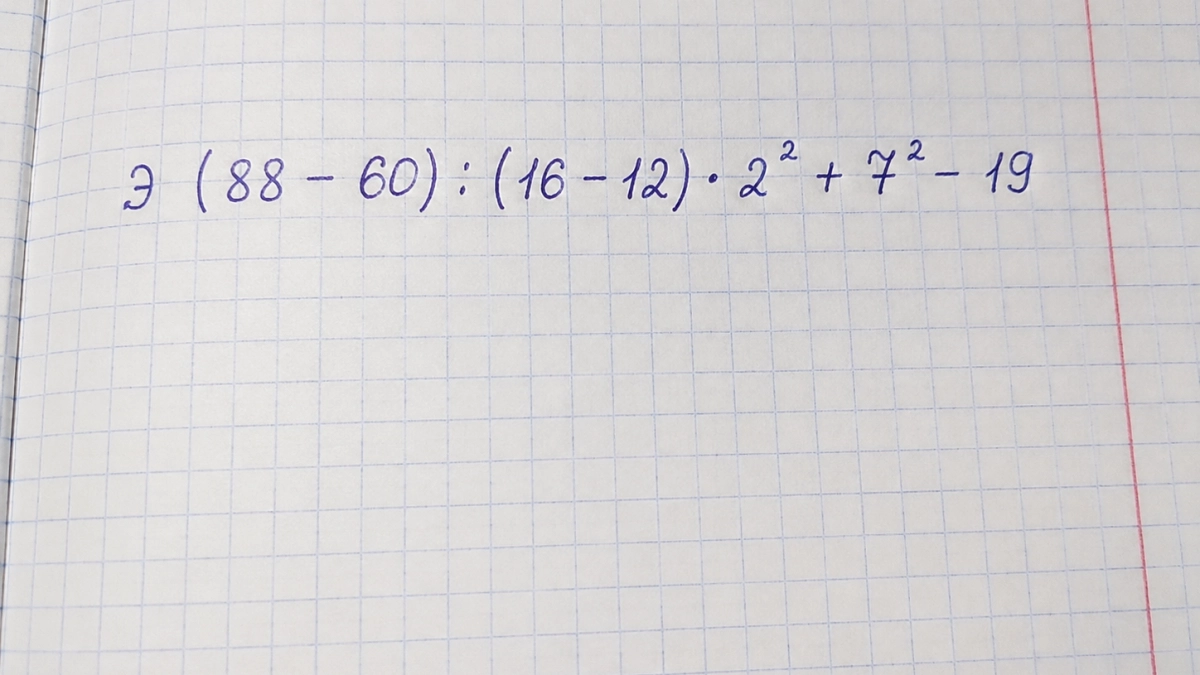 Э (88 - 60) : (16 - 12) · 2² + 7² - 19